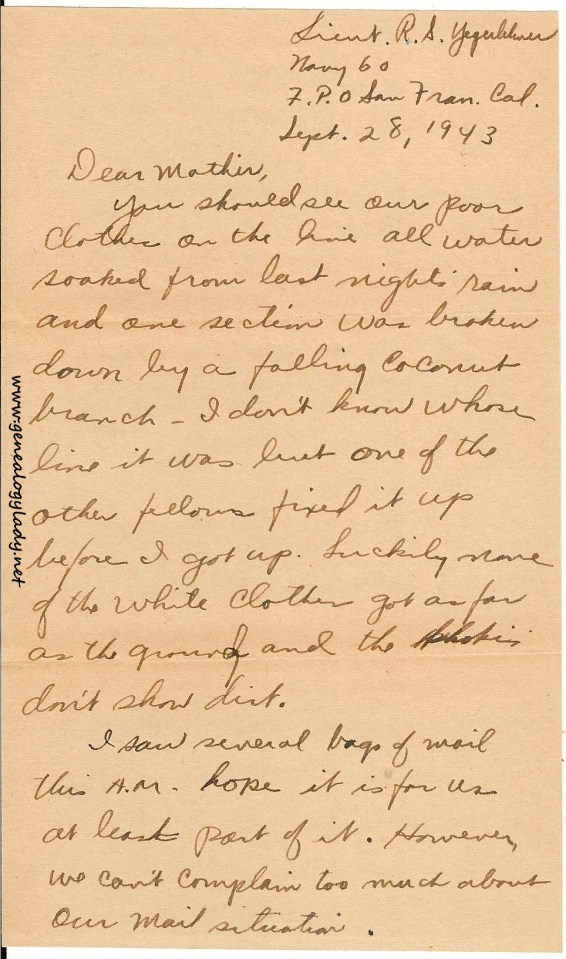 Lieut. R. S. Yegerlehner
Navy 60
F.P.O San Fran. Cal.
Sept. 28, 1943
Dear Mother,
You should see our poor
clothes on the line all water
soaked from last nights rain
and one section was broken
down by a falling coconut
branch - I don't know whose
line it was but one of the
other fellows fixed it up
before I got up. Luckily none
of the white clothes got as far
as the ground and the khakis
don't show dirt.
I saw several bags of mail
this A.M. hope it is for us
at least part of it. However,
we can't complain too much about
our mail situation.
www.genealogylady.net